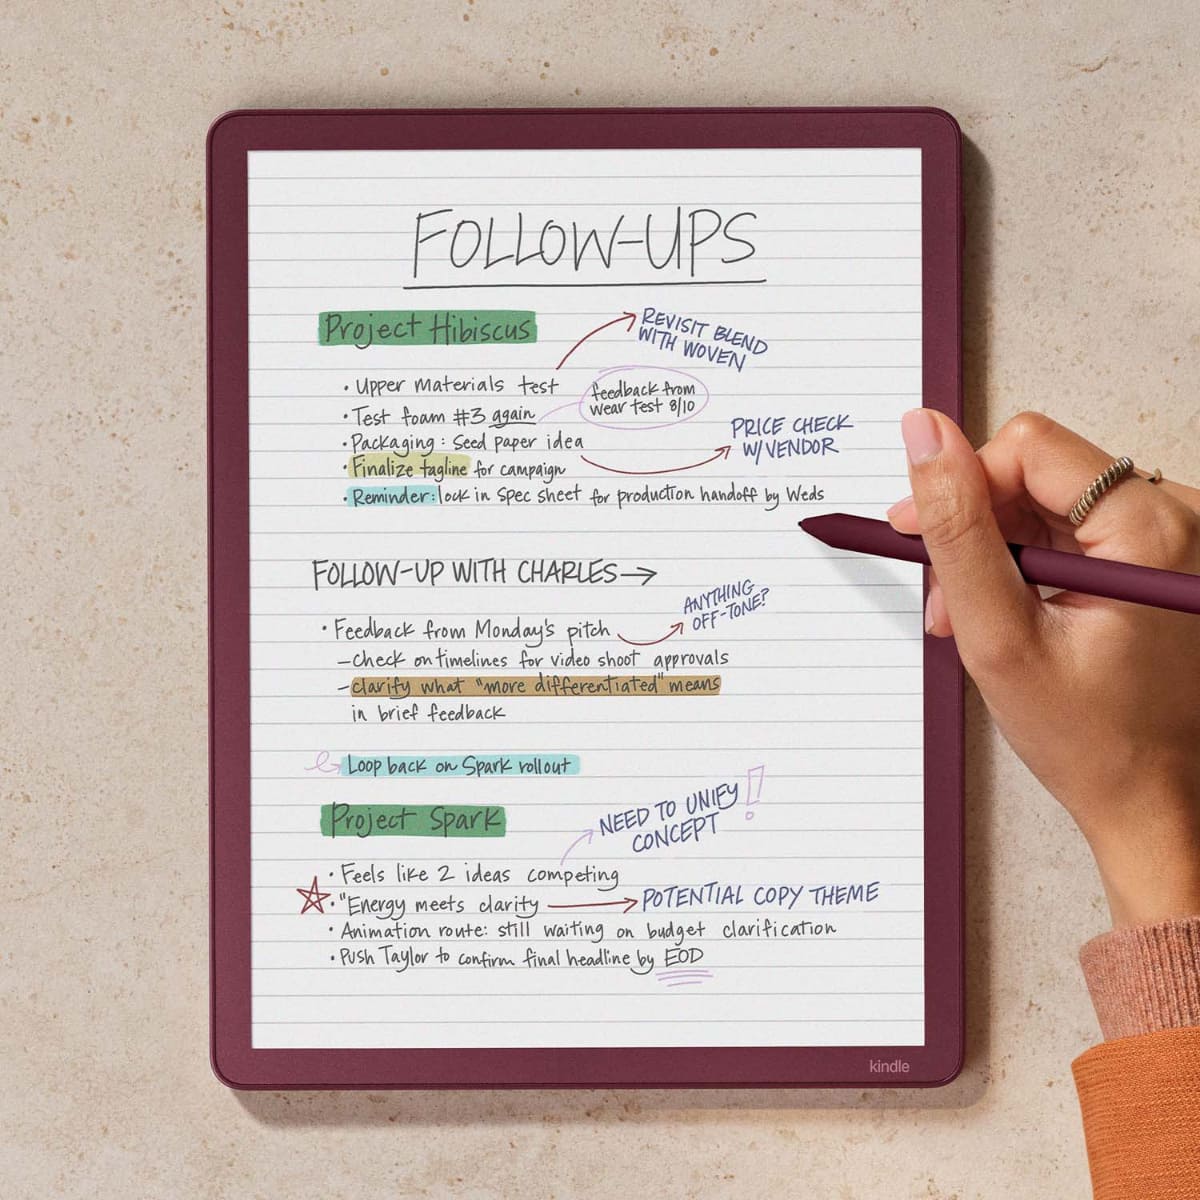 FOLLOW-UPS
Project Hibiscus
REVISIT BLEND
WITH WOVEN
• Upper Materials test
feedback from
wear test 8/10
• Test foam #3 again
PRICE CHECK
W/VENDOR
• Packaging: Seed paper idea
• Finalize tagline for campaign
• Reminder: lock in spec sheet for production handoff by Weds
FOLLOW-UP WITH CHARLES→
ANYTHING
OFF-TONE?
• Feedback from Monday's pitch
– check on timelines for video shoot approvals
– clarify what "more differentiated" means
in brief feedback
Loop back on Spark rollout
Project Spark
NEED TO UNIFY
CONCEPT!
• Feels like 2 ideas competing
• "Energy meets clarity → POTENTIAL COPY THEME
• Animation route: still waiting on budget clarification
• Push Taylor to confirm final headline by EOD
kindle